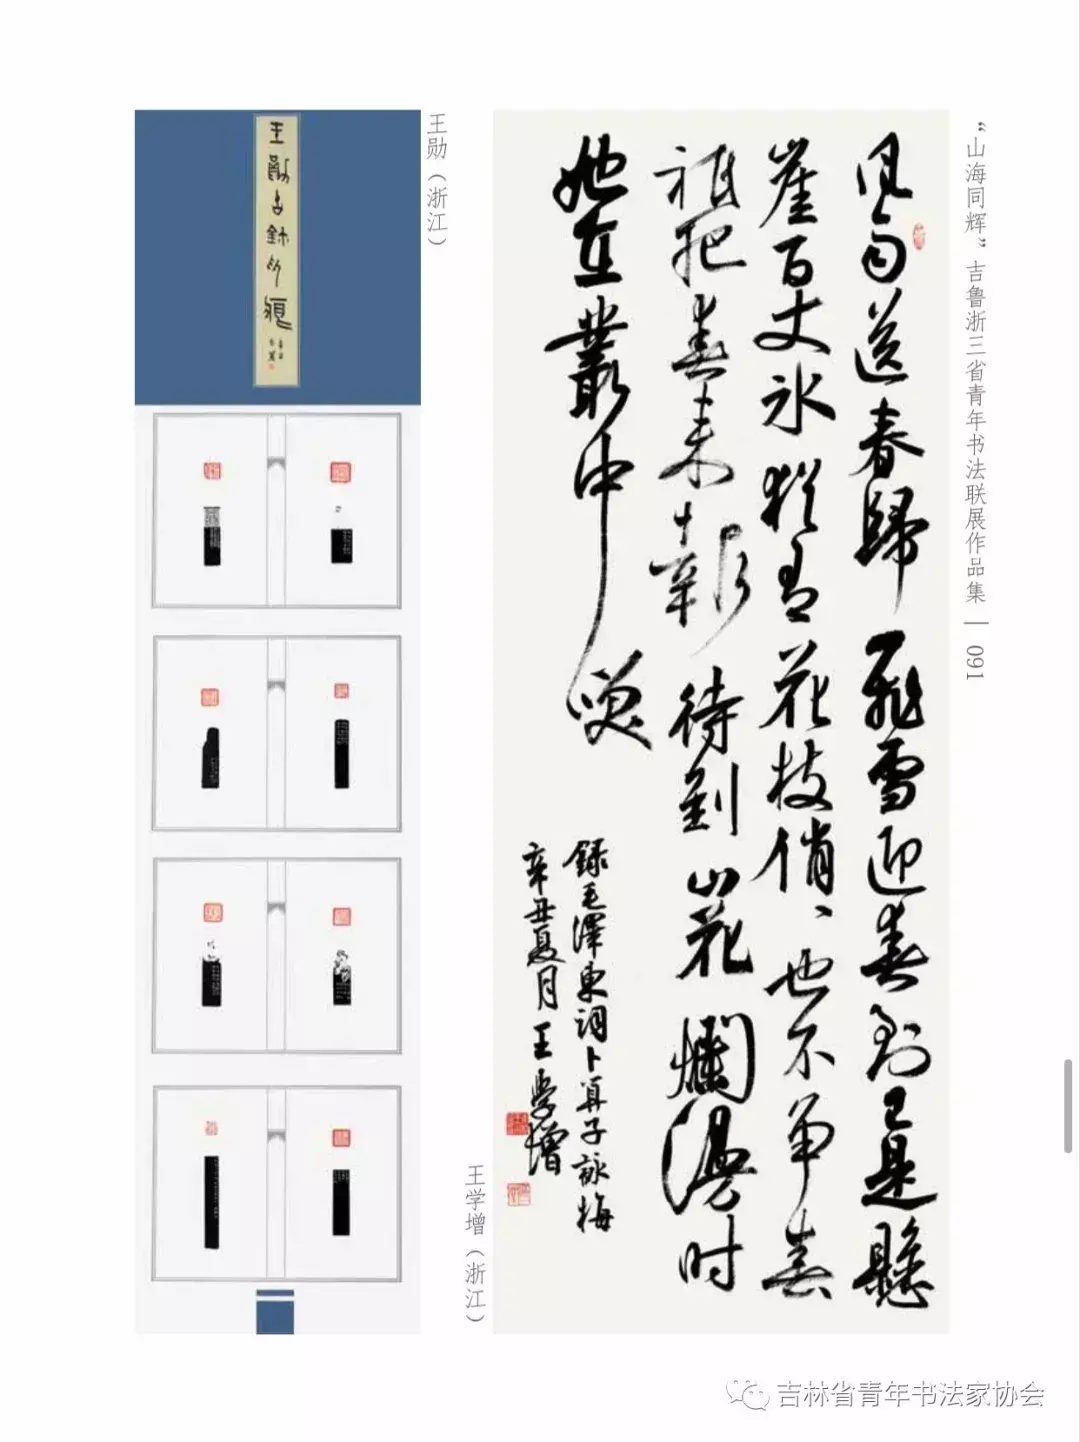 “山海同辉”吉鲁浙三省青年书法联展作品集 | 091
風雨送春歸飛雪迎春到已是懸
崖百丈冰猶有花枝俏、也不爭春
祗把春来報待到山花爛漫时
她在叢中笑
録毛澤東詞卜算子詠梅
辛丑夏月王學增
王学增（浙江）
王勋（浙江）
王勛鉥印痕
吉林省青年书法家协会